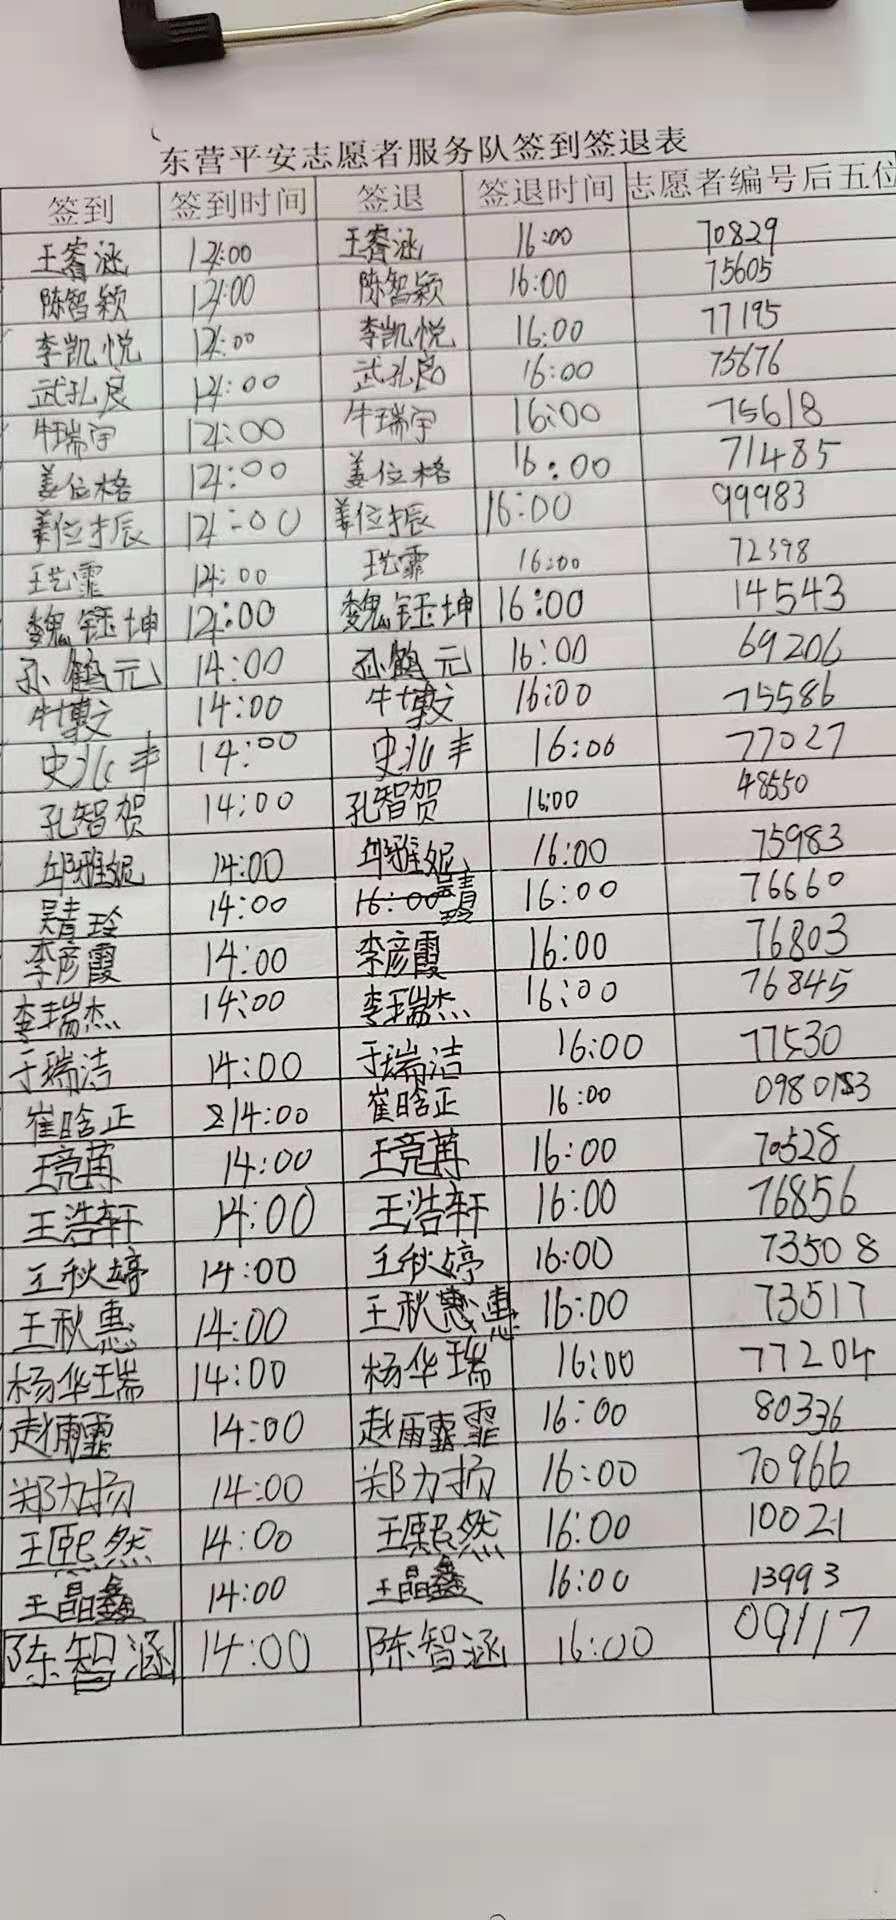 东营平安志愿者服务队签到签退表
签到 签到时间 签退 签退时间 志愿者编号后五位
王睿涵 14:00 王睿涵 16:00 70829
陈智颖 14:00 陈智颖 16:00 75605
李凯悦 14:00 李凯悦 16:00 77195
武孔良 14:00 武孔良 16:00 75676
牛瑞宇 14:00 牛瑞宇 16:00 75618
姜位格 14:00 姜位格 16:00 71485
姜位振 14:00 姜位振 16:00 99983
14:00 16:00 72398
魏钰坤 14:00 魏钰坤 16:00 14543
孙鹤元 14:00 孙鹤元 16:00 69206
牛博文 14:00 牛博文 16:00 75586
史兆丰 14:00 史兆丰 16:00 77027
孔智贺 14:00 孔智贺 16:00 48550
邱雅妮 14:00 邱雅妮 16:00 75983
吴青玲 14:00 16:00 吴青玲 16:00 76660
李彦霞 14:00 李彦霞 16:00 76803
李瑞杰 14:00 李瑞杰 16:00 76845
于瑞洁 14:00 于瑞洁 16:00 77530
崔晗正 14:00 崔晗正 16:00
王竞苒 14:00 王竞苒 16:00 70528
王浩轩 14:00 王浩轩 16:00 76856
王秋婷 14:00 王秋婷 16:00 73508
王秋惠 14:00 王秋惠 惠 16:00 73517
杨华瑞 14:00 杨华瑞 16:00 77204
赵雨霏 14:00 赵雨霏 霏 16:00 80336
郑力扬 14:00 郑力扬 16:00 70966
王熙然 14:00 王熙然 16:00 10021
王晶鑫 14:00 王晶鑫 16:00 13993
陈智涵 14:00 陈智涵 16:00 09117